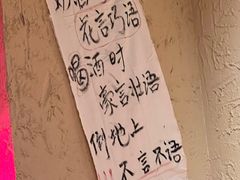 花言巧语
喝酒时
豪言壮语
倒地上
不言不语